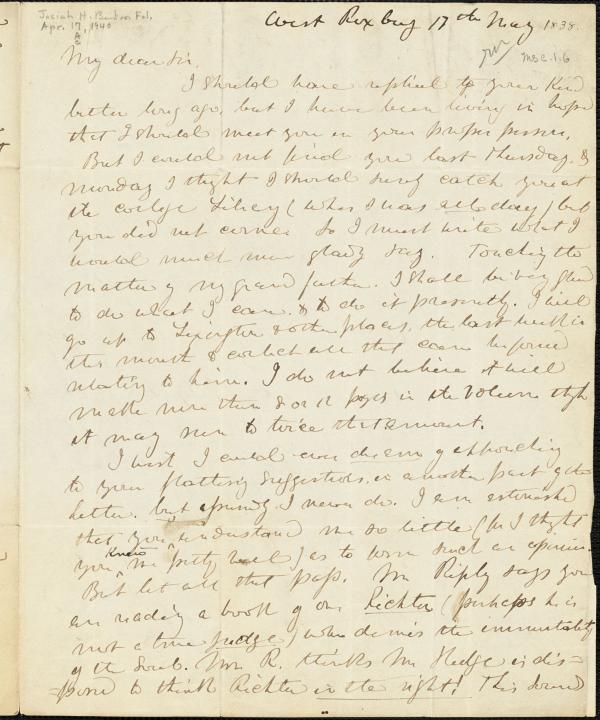 Josiah H. Benton Fd.
Apr. 17, 1940
A
S
West Roxbury 17th May 1838.
Ms C.1.6
My dear Sir,
I should have replied to your Kind
letter long ago, but I have been living in hope
that I should meet you in your proper person.
But I could not find you last Thursday, &
monday I thght I should surely catch you at
the College Library (where I was all day) but
you did not come. So I must write what I
would much more gladly say. Touching the
matter of my grand father. I shall be very glad
to do what I can, & to do it presently. I will
go up to Lexington & other places, the last week in
this month & collect all that can be found
relating to him. I do not believe it will
make more than 8 or 12 pages in the Volume thgh
it may run to twice that amount.
I wish I could ever dream of responding
to your flattering suggestions, in another part of the
letter. but I never do. I am astonished
that you understand me so little (for I thght
you knew me pretty well) as to form such an opinion.
But let all that pass. Mr Ripley says you
are reading a book of one Richter (perhaps he is
not a true judge) who denies the immortality
of the Soul. Mr. R. thinks Mr Hedge is dis=
=posed to think Richter in the right! This sound